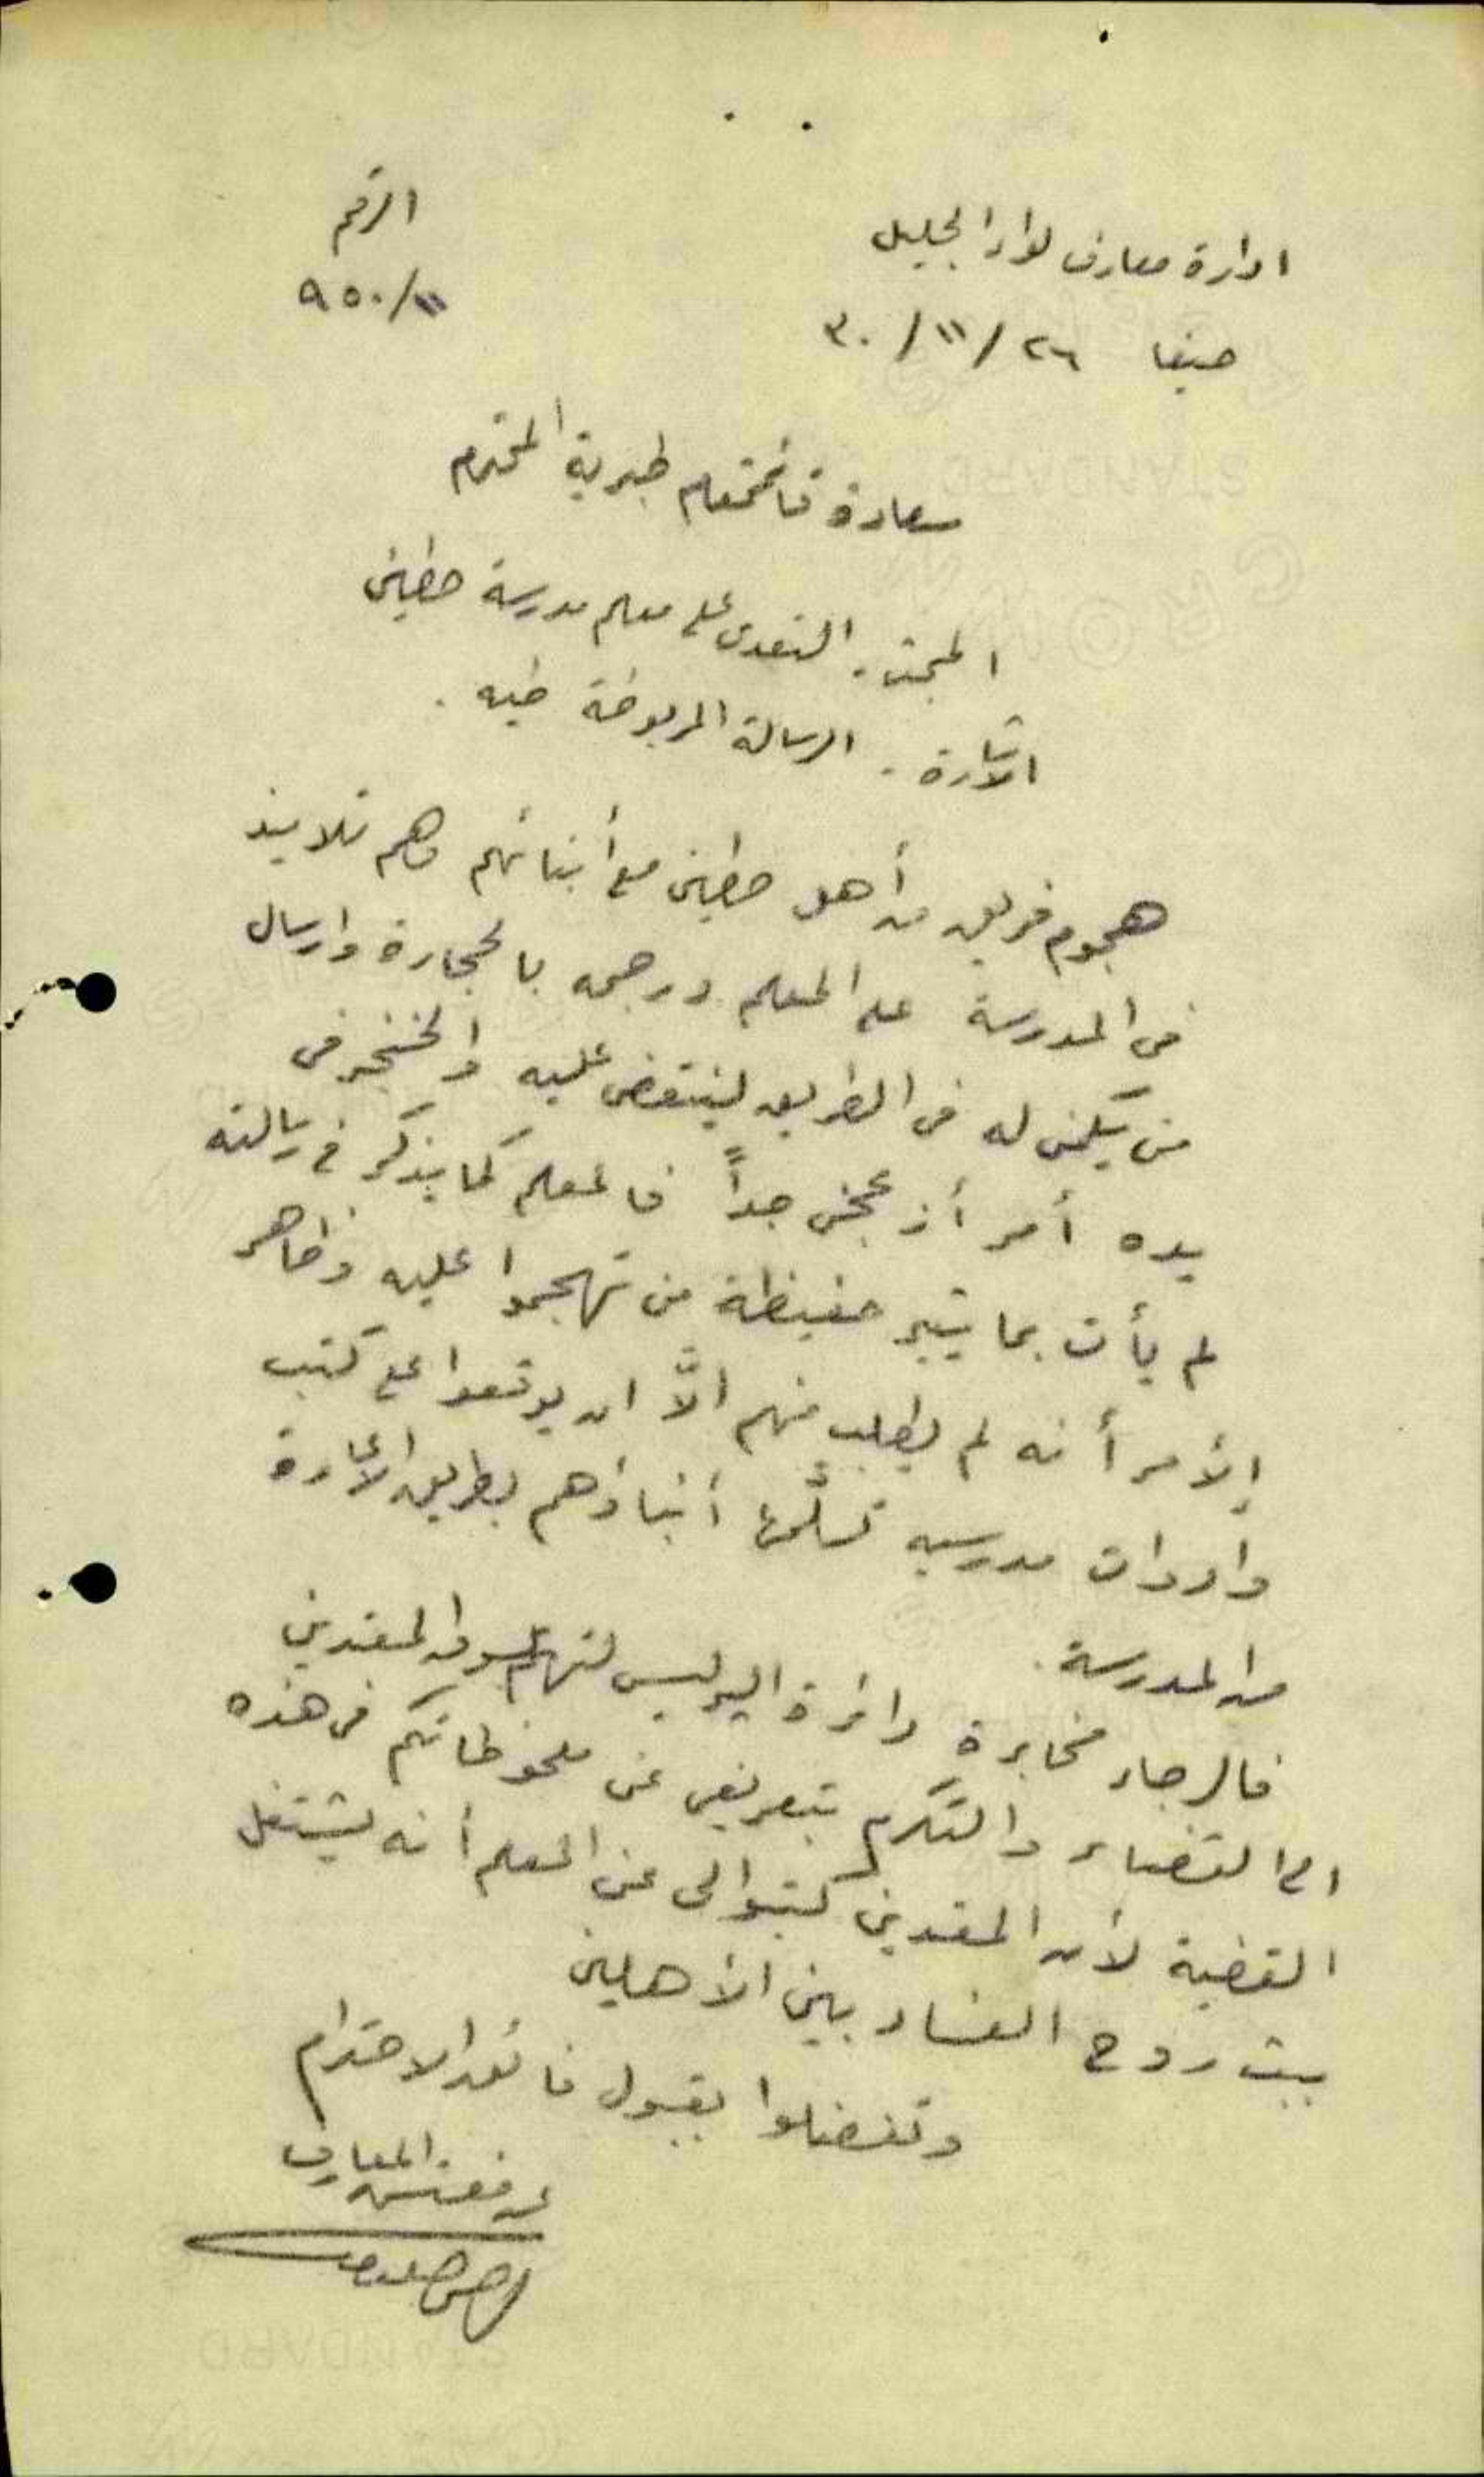 ادارة معارف لواء الجليل
حيفا ٢٦/١١/٣٠
الرقم
٩٥٠/١١
سعادة قائمقام طبرية المحترم
المبحث. التعدى على معلم مدرسة حطين
الاشارة. الرسالة المربوطة طيه.
هجوم فريق من أهل حطين مع أبنائهم وهم تلاميذ
فى المدرسة على المعلم ورجمه بالحجارة وارسال
من يكمن له فى الطريق لينقض عليه والخنجر فى
يده أمر أزعجنى جداً فالمعلم كما يذكر في رسالته
لم يأت بما يثير حفيظة من تهجموا عليه وظاهر
الأمر أنه لم يطلب منهم الاَّ ان يوقعوا على كتب
وادوات مدرسيه تسلَّمها أبناؤهم بطريق الاعارة
من المدرسة.
فالرجاء مخابرة دائرة البوليس لسوق المعتدين
الى القضاء والتكرم بتعريفى عن ملحوظاتكم فى هذه
القضية لأن المعتدين كتبوا لى عن المعلم أنه يشتغل
ببث روح الفساد بين الأهلين
وتفضلوا بقبول فائق الاحترام
عن مفتش المعارف